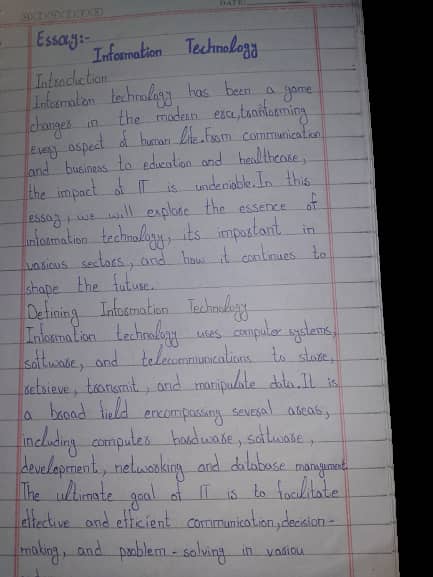 DATE:
Essay:-
Information Technology
Introduction
Information technology has been a game
changes in the modern era, transforming
every aspect of human life. From communication
and business to education and healthcare,
the impact of IT is undeniable. In this
essay, we will explore the essence of
information technology, its important in
various sectors, and how it continues to
shape the future.
Defining Information Technology
Information technology uses computer systems,
software, and telecommunications to store,
retrieve, transmit, and manipulate data. It is
a broad field encompassing several areas,
including computer hardware, software,
development, networking and database management
The ultimate goal of IT is to facilitate
effective and efficient communication, decision-
making, and problem-solving in variou